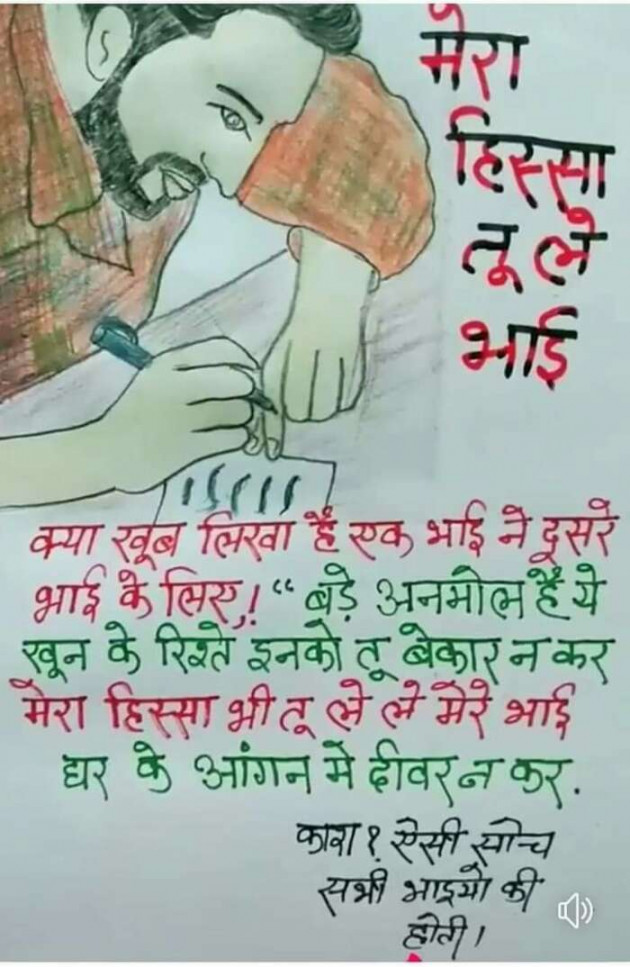 मेरा
हिस्सा
तू ले
भाई
क्या खूब लिखा है एक भाई ने दूसरे
भाई के लिए,! "बड़े अनमोल है ये
खून के रिश्ते इनको तू बेकार न कर
मेरा हिस्सा भी तू ले ले मेरे भाई
घर के आंगन मे दीवर न कर.
काश? ऐसी सोच
सभी भाइयो की
होती।